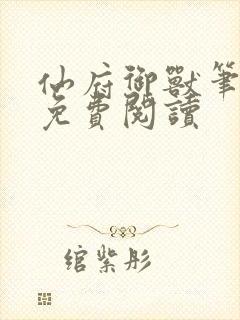 仙府御獸筆
免費閱讀
綰紫彤